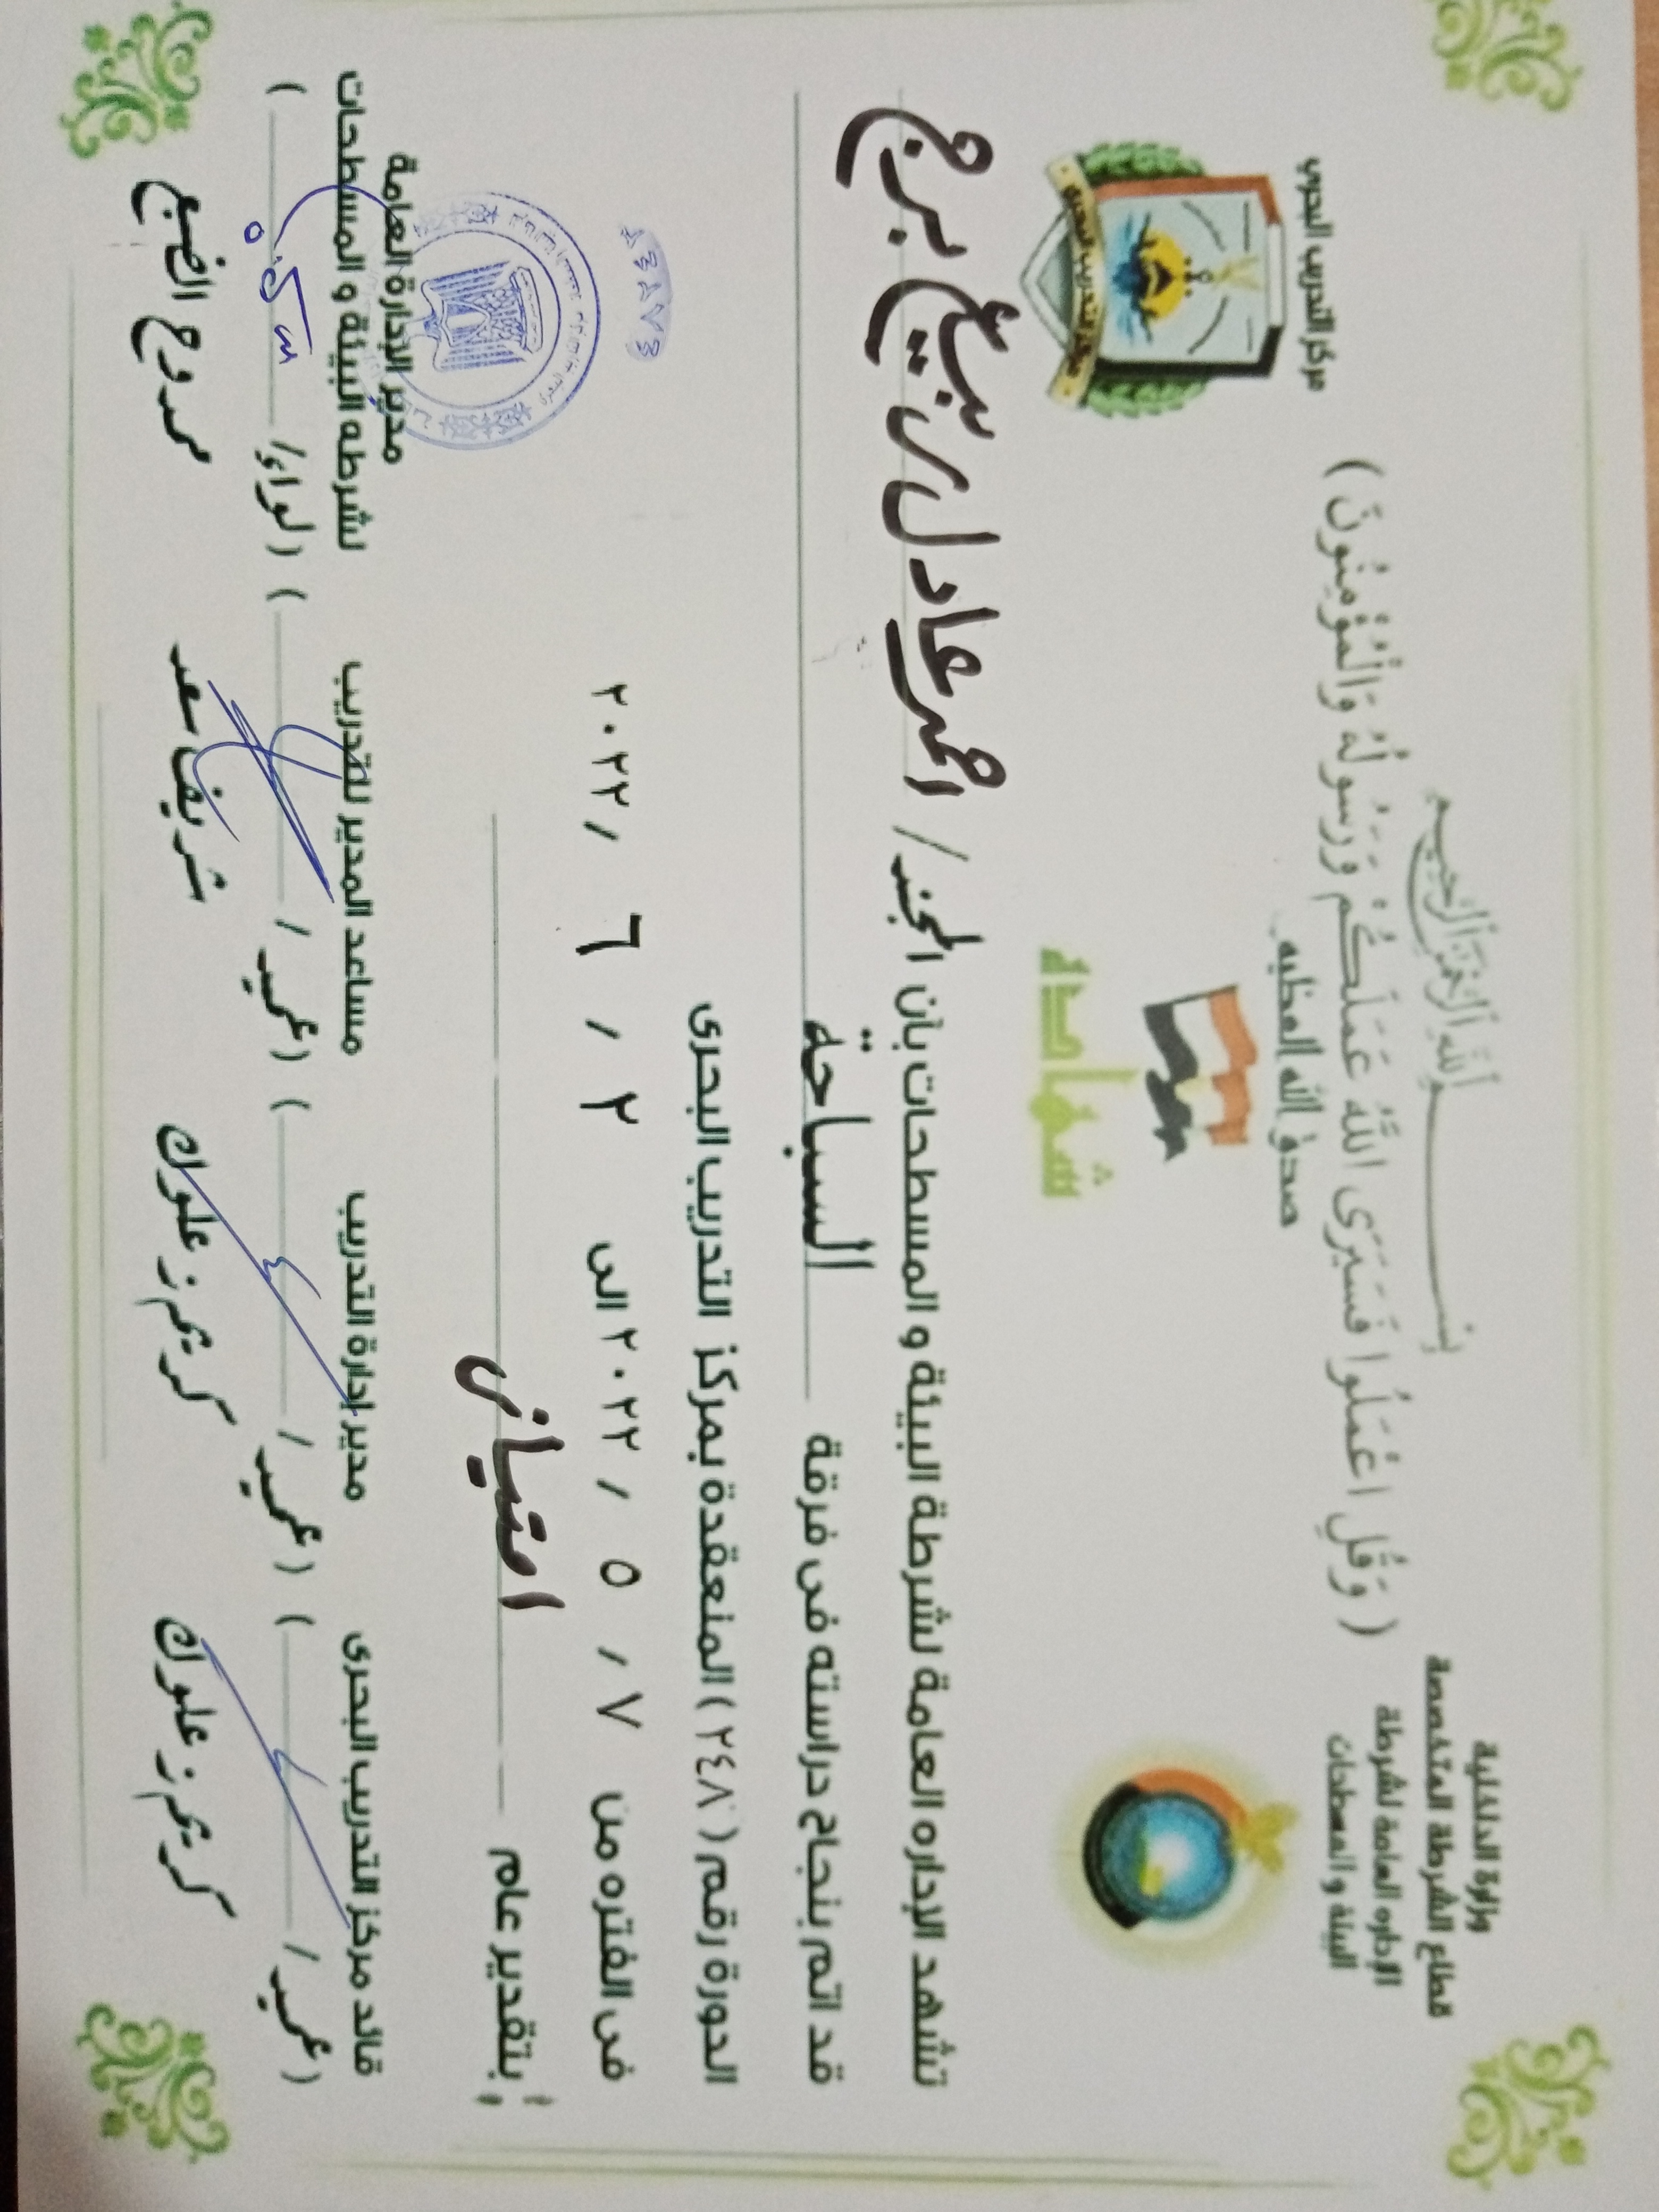 وزارة الداخلية
قطاع الشرطة المتخصصة
الإداره العامة لشرطة
البيئة و المسطحات
مركز التدريب البحرى
بسم الله الرحمن الرحيم
( وَقُلِ اعْمَلُوا فَسَيَرَى اللَّهُ عَمَلَكُمْ وَرَسُولُهُ وَالْمُؤْمِنُونَ )
صدق الله العظيم
شهادة
تشهد الإداره العامة لشرطة البيئة و المسطحات بأن المجند / احمد عادل ربيع برج
قد اتم بنجاح دراسته فى فرقة السباحة
الدورة رقم ( ٢٤٨ ) المنعقدة بمركز التدريب البحرى
فى الفتره من ٧ / ٥ / ٢٠٢٢ الى ٢ / ٦ / ٢٠٢٢
بتقدير عام امتياز
قائد مركز التدريب البحرى
( عميد /
كريم ز علوك
مدير إدارة التدريب
( عميد /
كريم ز علوك
مساعد المدير للتدريب
( عميد /
شريف سعد
مدير الإدارة العامة
لشرطه البيئة و المسطحات
( لواء /